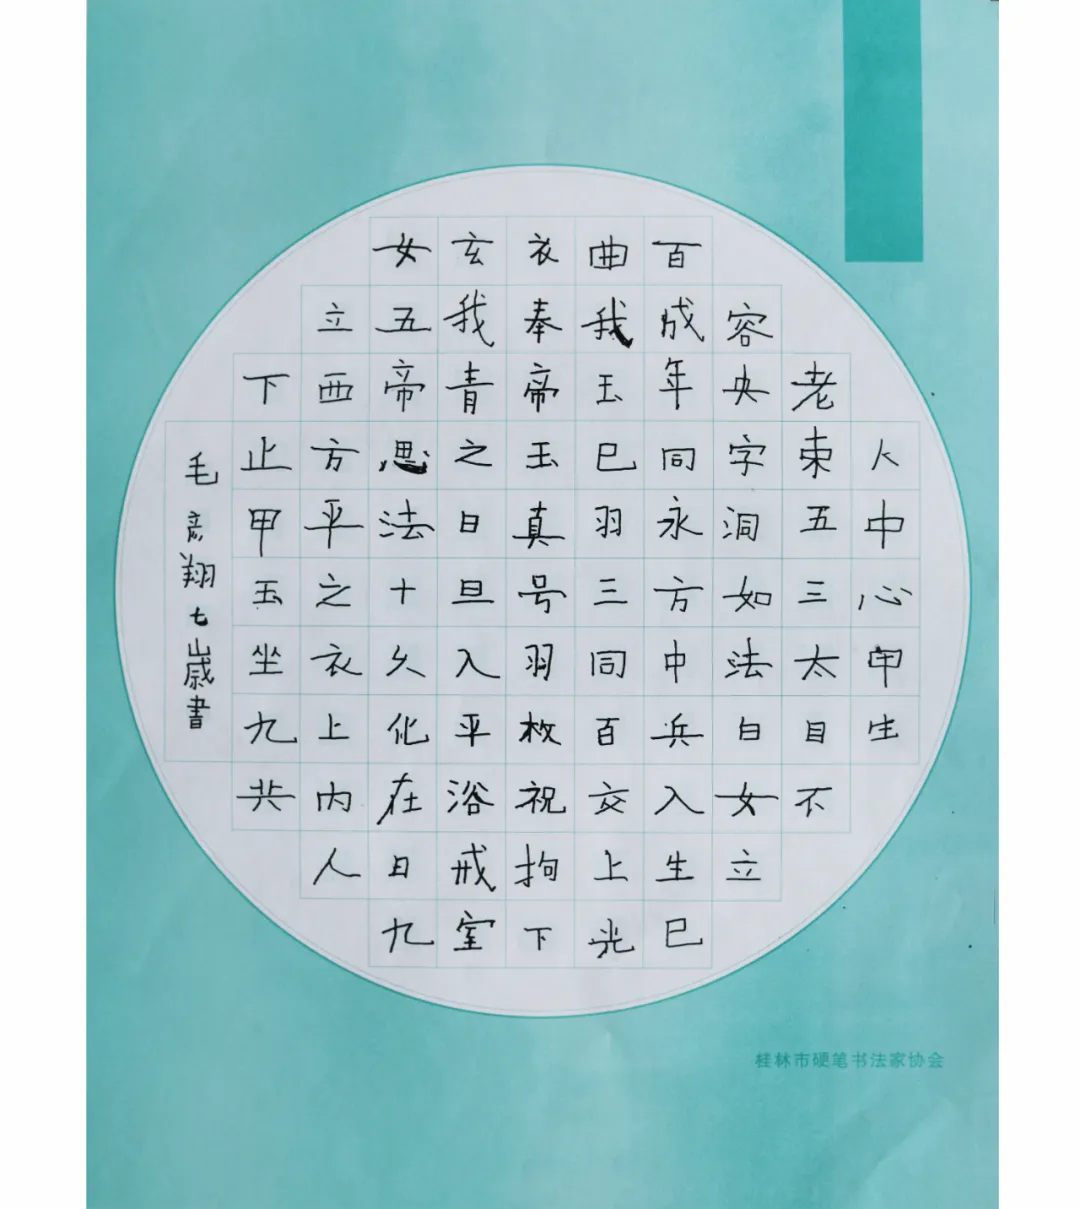 人中心甲生
老東五三太目不
容央字洞如法白女立
百成年同永方中兵入生巳
曲我玉巳羽三同百交上光
衣奉帝玉真号羽枚祝拘下
玄我青之日旦入平浴戒室
女五帝思法十久化在日九
立西方平之衣上内人
下止甲玉坐九共
毛彦翔七歲書
桂林市硬笔书法家协会